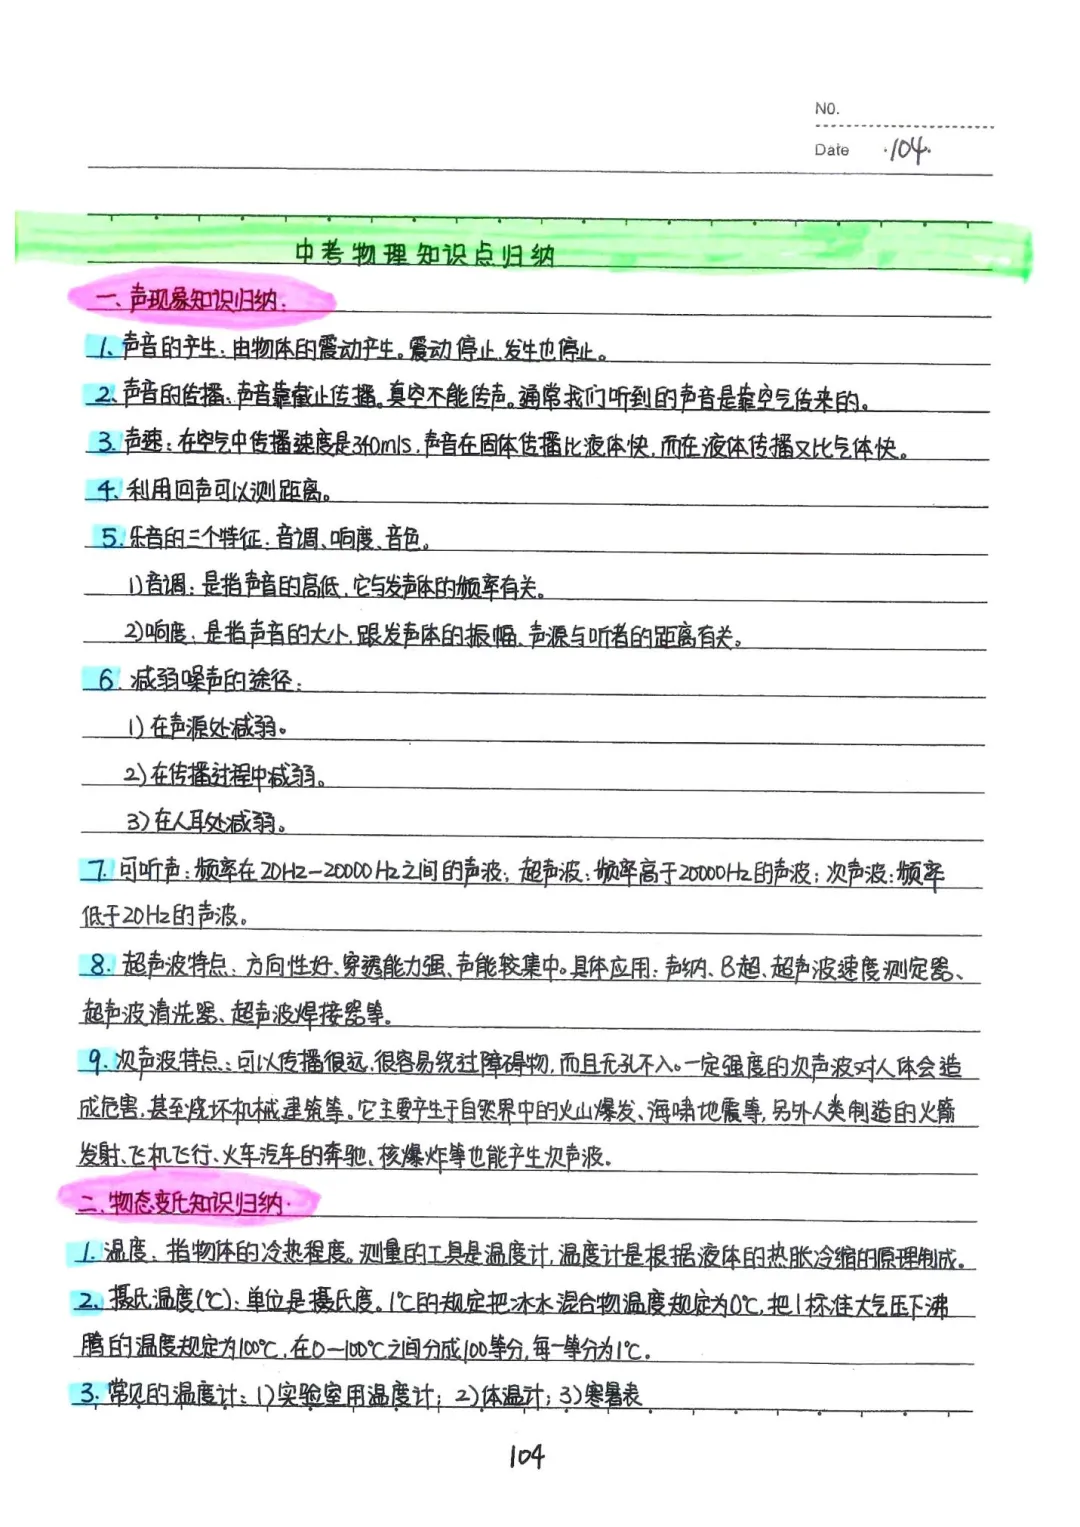 NO.
Date ·104·
中考物理知识点归纳
一、声现象知识归纳:
1、声音的产生:由物体的震动产生。震动停止,发生也停止。
2、声音的传播、声音靠截止传播。真空不能传声。通常我们听到的声音是靠空气传来的。
3、声速:在空气中传播速度是340m/s,声音在固体传播比液体快,而在液体传播又比气体快。
4、利用回声可以测距离。
5.乐音的三个特征:音调、响度、音色。
1)音调:是指声音的高低,它与发声体的频率有关。
2)响度:是指声音的大小,跟发声体的振幅、声源与听者的距离有关。
6.减弱噪声的途径:
1)在声源处减弱。
2)在传播过程中减弱。
3)在人耳处减弱。
7.可听声:频率在20Hz-20000Hz之间的声波;超声波:频率高于20000Hz的声波;次声波:频率
低于20Hz的声波。
8.超声波特点:方向性好、穿透能力强、声能较集中。具体应用:声纳、B超、超声波速度测定器、
超声波清洗器、超声波焊接器等.
9.次声波特点:可以传播很远,很容易绕过障碍物,而且无孔不入。一定强度的次声波对人体会造
成危害,甚至烧坏机械建筑等。它主要产生于自然界中的火山爆发、海啸地震等,另外人类制造的火箭
发射、飞机飞行、火车汽车的奔驰、核爆炸等也能产生次声波。
二、物态变化知识归纳·
1.温度:指物体的冷热程度。测量的工具是温度计,温度计是根据液体的热胀冷缩的原理制成。
2.摄氏温度(℃):单位是摄氏度。1℃的规定把冰水混合物温度规定为0℃,把1标准大气压下沸
腾的温度规定为100℃,在0-100℃之间分成100等分,每一等分为1℃。
3.常见的温度计:1)实验室用温度计;2)体温计;3)寒暑表
104